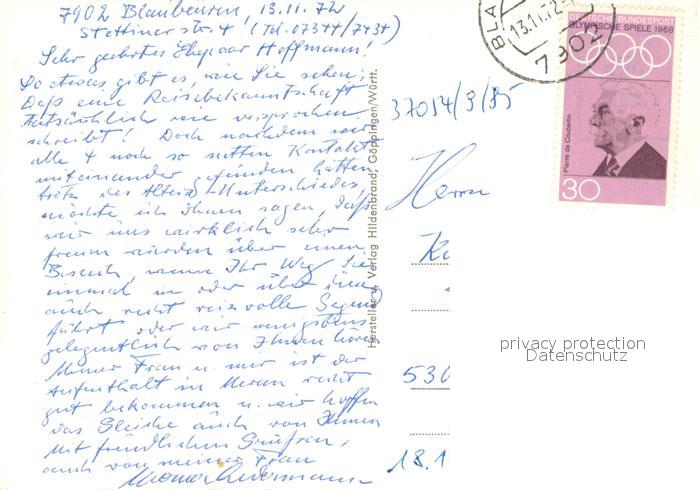 7902 Blaubeuren, 13.11.72
Stettiner Str. 4 (Tel. 07344/7434)
Sehr geehrtes Ehepaar Hoffmann!
So etwas gibt es, wie Sie sehen;
Daß eine Reisebekanntschaft
tatsächlich wie versprochen
schreibt! Doch nachdem wir
alle 4 noch so netten Kontakt
miteinander gefunden hatten
trotz des Alters-Unterschiedes,
möchte ich Ihnen sagen, daß
wir uns wirklich sehr
freuen würden über einen
Besuch, wenn Ihr Weg Sie
einmal in oder über
auch recht reizvolle Gegend
führt oder wir wenigstens
gelegentlich von Ihnen hören.
Meiner Frau u. mir ist der
Aufenthalt in Meran recht
gut bekommen u. wir hoffen
das Gleiche auch von Ihnen
Mit freundlichen Grüßen,
auch von meiner Frau
Hersteller u. Verlag Hildenbrand, Göppingen/Württ.
37014/9/35
Herrn
530
18.1
BLA
13.11.72
7902
DEUTSCHE BUNDESPOST
OLYMPISCHE SPIELE 1968
Pierre de Coubertin
30
privacy protection
Datenschutz